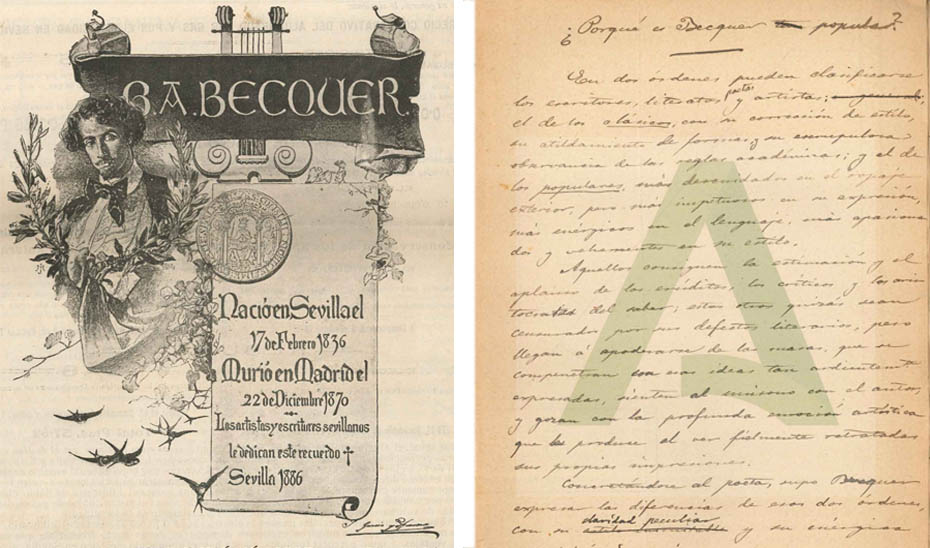 G. A. BECQUER.
Nació en Sevilla el
17 de Febrero 1836
Murió en Madrid el
22 de Diciembre 1870
Los artistas y escritores sevillanos
le dedican este recuerdo
Sevilla 1886
¿Porqué es Becquer popular?
En dos órdenes pueden clasificarse
los escritores, literatos, poetas y artistas;
el de los clásicos, con su corrección de estilo,
su atildamiento de formas, su escrupulosa
observancia de las reglas académicas; y el de
los populares, más descuidados en el ropaje
exterior, pero más impetuosos en su expresión,
más enérgicos en el lenguaje, más apasiona
dos y vehementes en su estilo.
Aquellos consiguen la estimación y el
aplauso de los eruditos, los críticos y los aris
tocratas del saber; estos otros quizás sean
censurados por sus defectos literarios, pero
llegan á apoderarse de las masas, que se
compenetran con esas ideas tan ardientemte
expresadas, sienten al unísono con el autor,
y gozan con la profunda emoción artística
que les produce el ver fielmente retratadas
sus propias impresiones.
Concretándose al poeta, supo Becquer
expresar las diferencias de esos dos órdenes,
con su claridad peculiar y su enérgica